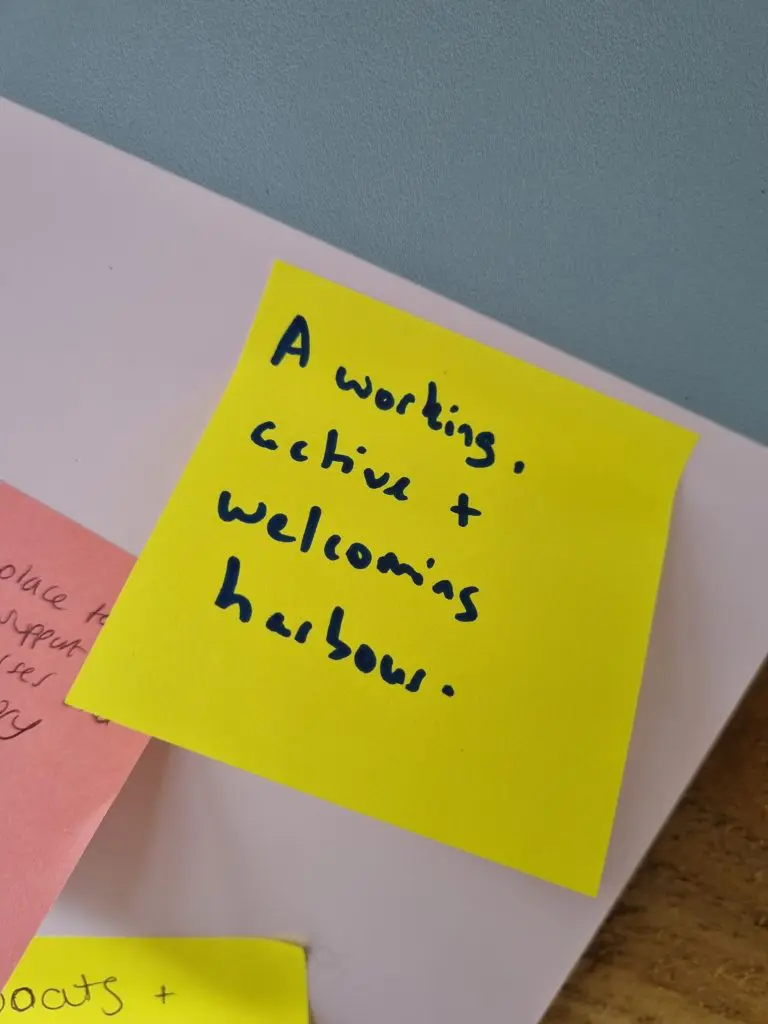 A working.
active +
welcoming
harbour.
place to
support
ory
boats +